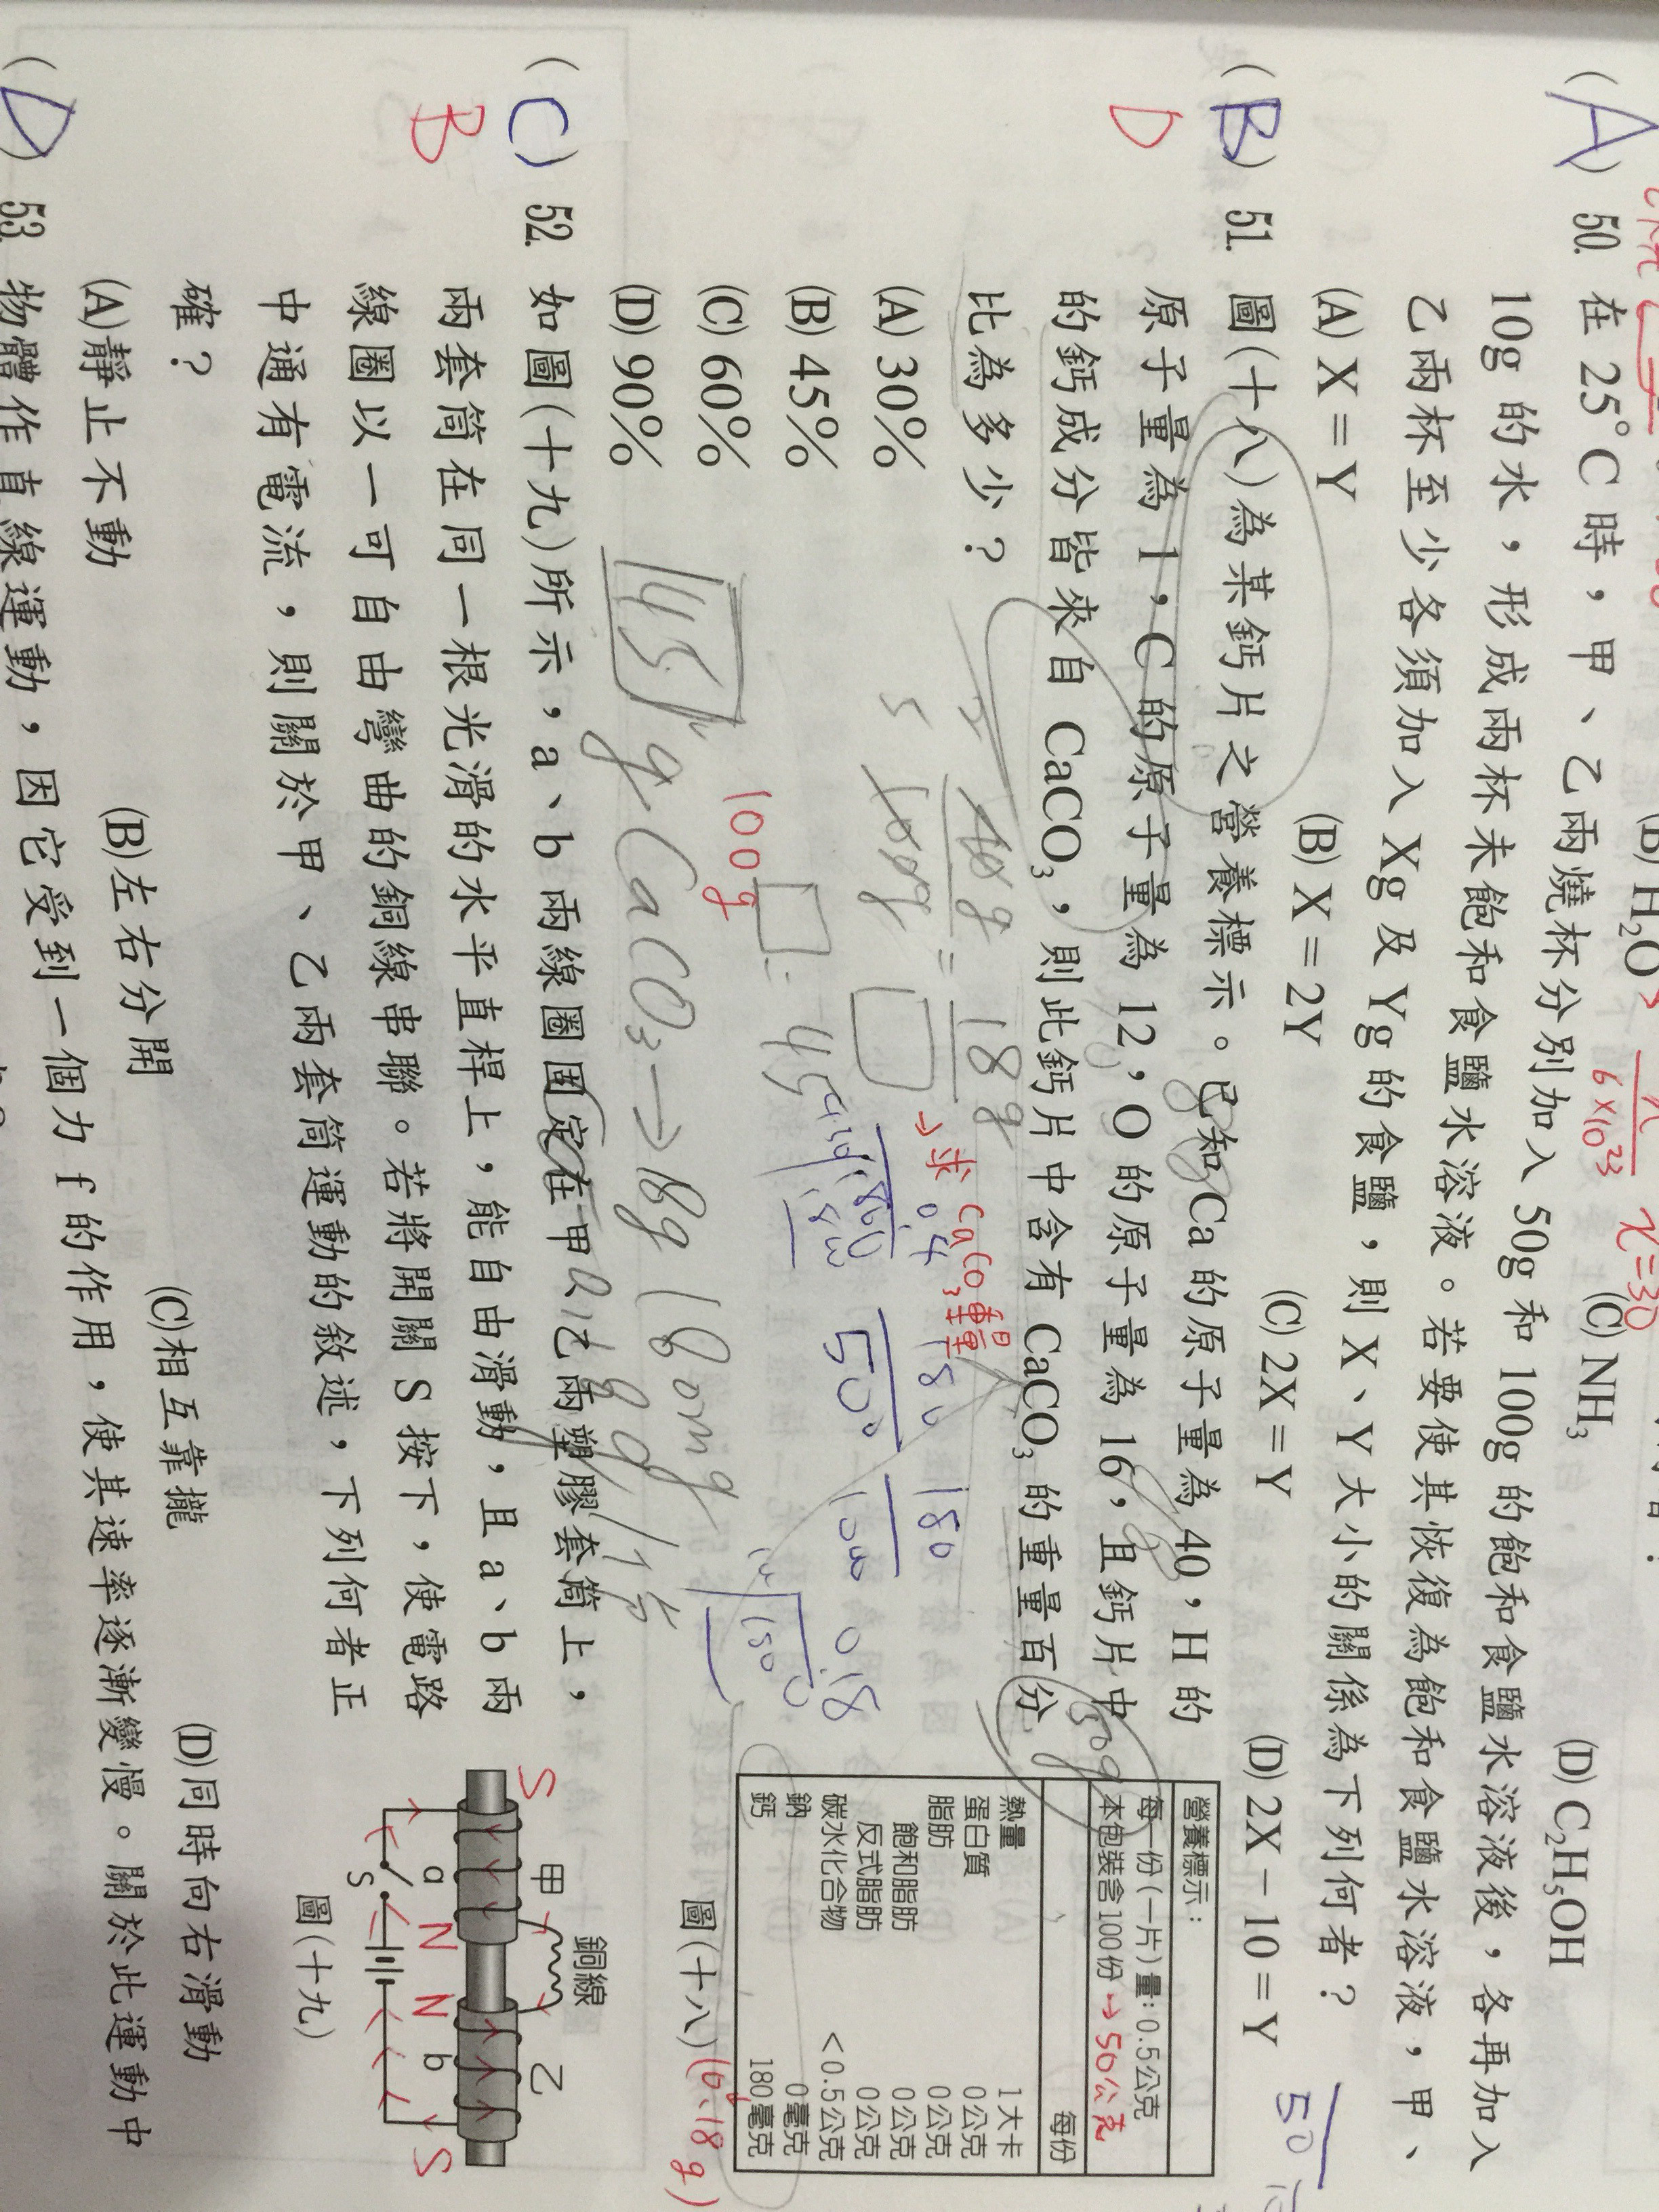 (B) H₂O
(C) NH₃
(D) C₂H₅OH
6×10²³
x=30
(A) 50. 在 25°C 時，甲、乙兩燒杯分別加入 50g 和 100g 的飽和食鹽水溶液後，各再加入
10g 的水，形成兩杯未飽和食鹽水溶液。若要使其恢復為飽和食鹽水溶液，甲、
乙兩杯至少各須加入 Xg 及 Yg 的食鹽，則 X、Y 大小的關係為下列何者？
(A) X = Y (B) X = 2Y (C) 2X = Y (D) 2X − 10 = Y
50
(B) 51. 圖(十八)為某鈣片之營養標示。已知 Ca 的原子量為 40，H 的
D
原子量為 1，C 的原子量為 12，O 的原子量為 16，且鈣片中
的鈣成分皆來自 CaCO₃，則此鈣片中含有 CaCO₃ 的重量百分
比為多少？
(A) 30%
(B) 45%
(C) 60%
(D) 90%
40g
100g
=
18g
→求 CaCO₃重量
2
5
100g
45
0.4
180
500
180
1000
0.18
45g CaCO₃→18g
180mg
50g
營養標示：
每一份(一片)量：0.5公克
本包裝含100份 →50公克
每份
熱量 1大卡
蛋白質 0公克
脂肪 0公克
飽和脂肪 0公克
反式脂肪 0公克
碳水化合物 <0.5公克
鈉 0毫克
鈣 180毫克
圖(十八)
(C) 52. 如圖(十九)所示，a、b 兩線圈固定在甲、乙兩塑膠套筒上，
B
兩套筒在同一根光滑的水平直桿上，能自由滑動，且 a、b 兩
線圈以一可自由彎曲的銅線串聯。若將開關 S 按下，使電路
中通有電流，則關於甲、乙兩套筒運動的敘述，下列何者正
確？
(A)靜止不動 (B)左右分開 (C)相互靠攏 (D)同時向右滑動
銅線
甲
乙
S
a
N
N
b
S
S
圖(十九)
(D) 53. 物體作直線運動，因它受到一個力 f 的作用，使其速率逐漸變慢。關於此運動中